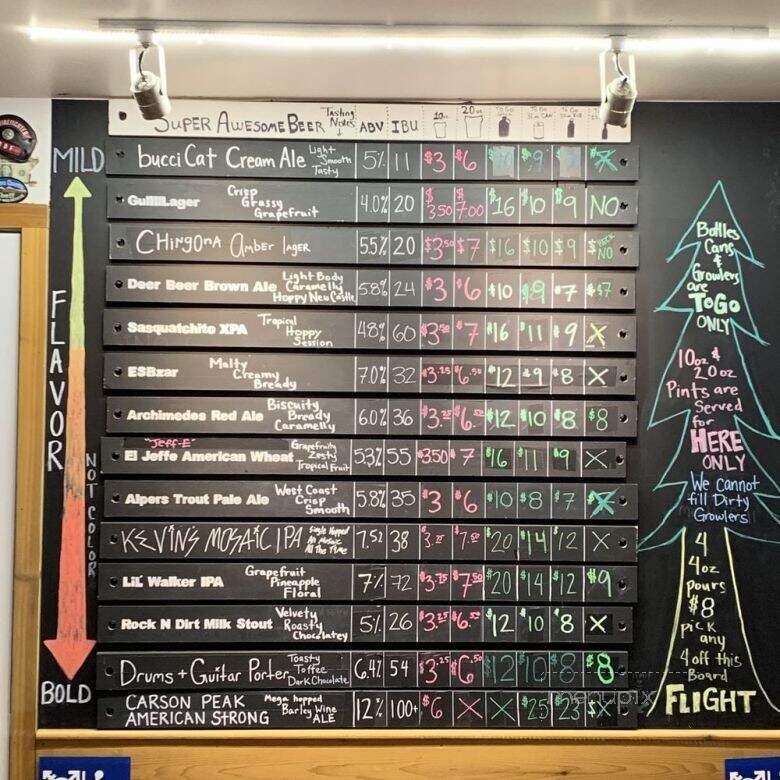 SUPER AWESOMEBEER Tasting Notes ABV IBU 10oz 20oz
MILD
bucciCat Cream Ale Light Smooth Tasty 5% 11 $3 $6 $9 X
GullLager Crisp Grassy Grapefruit 4.0% 20 $3.50 $7.00 $16 $10 $9 NO
CHINGONA Amber LAGER 5.5% 20 $3.50 $7 $16 $10 $9 NO
Deer Beer Brown Ale Light Body Caramelly Hoppy New Castle 5.8% 24 $3 $6 $10 $9 $7 $7
Sasquatchito XPA Tropical Hoppy Session 4.8% 60 $3.50 $7 $16 $11 $9 X
ESBzar Malty Creamy Bready 7.0% 32 $3.25 $6.50 $12 $9 $8 X
Archimedes Red Ale Biscuity Bready Caramelly 6.0% 36 $3.25 $6.50 $12 $10 $8 $8
"JEFF-E"
El Jeffe American Wheat Grapefruity Zesty Tropical Fruit 5.3% 55 $3.50 $7 $16 $11 $9 X
Alpers Trout Pale Ale West Coast Crisp Smooth 5.8% 35 $3 $6 $10 $8 $7 X
KEVIN'S MOSAIC IPA Single Hopped All Mosaic All The Time 7.52 38 $7.50 $20 $14 $12 X
Lil' Walker IPA Grapefruit Pineapple Floral 7% 72 $3.75 $7.50 $20 $14 $12 $9
Rock N Dirt Milk Stout Velvety Roasty Chocolatey 5% 26 $3.25 $6.50 $12 $10 $8 X
Drums + Guitar Porter Toasty Toffee Dark Chocolate 6.4% 54 $3.25 $6.50 $12 $10 $8 $8
CARSON PEAK AMERICAN STRONG Mega hopped Barley Wine ALE 12% 100+ $6 X X $25 $23 X
BOLD
FLAVOR
NOT COLOR
Bottles
Cans
&
Growlers
are
TOGO
ONLY
10oz &
20oz
Pints are
Served
for
HERE
ONLY
We cannot
fill Dirty
Growlers
4
4oz
pours
$8
pick
any
4 off this
Board
FLIGHT
menupix